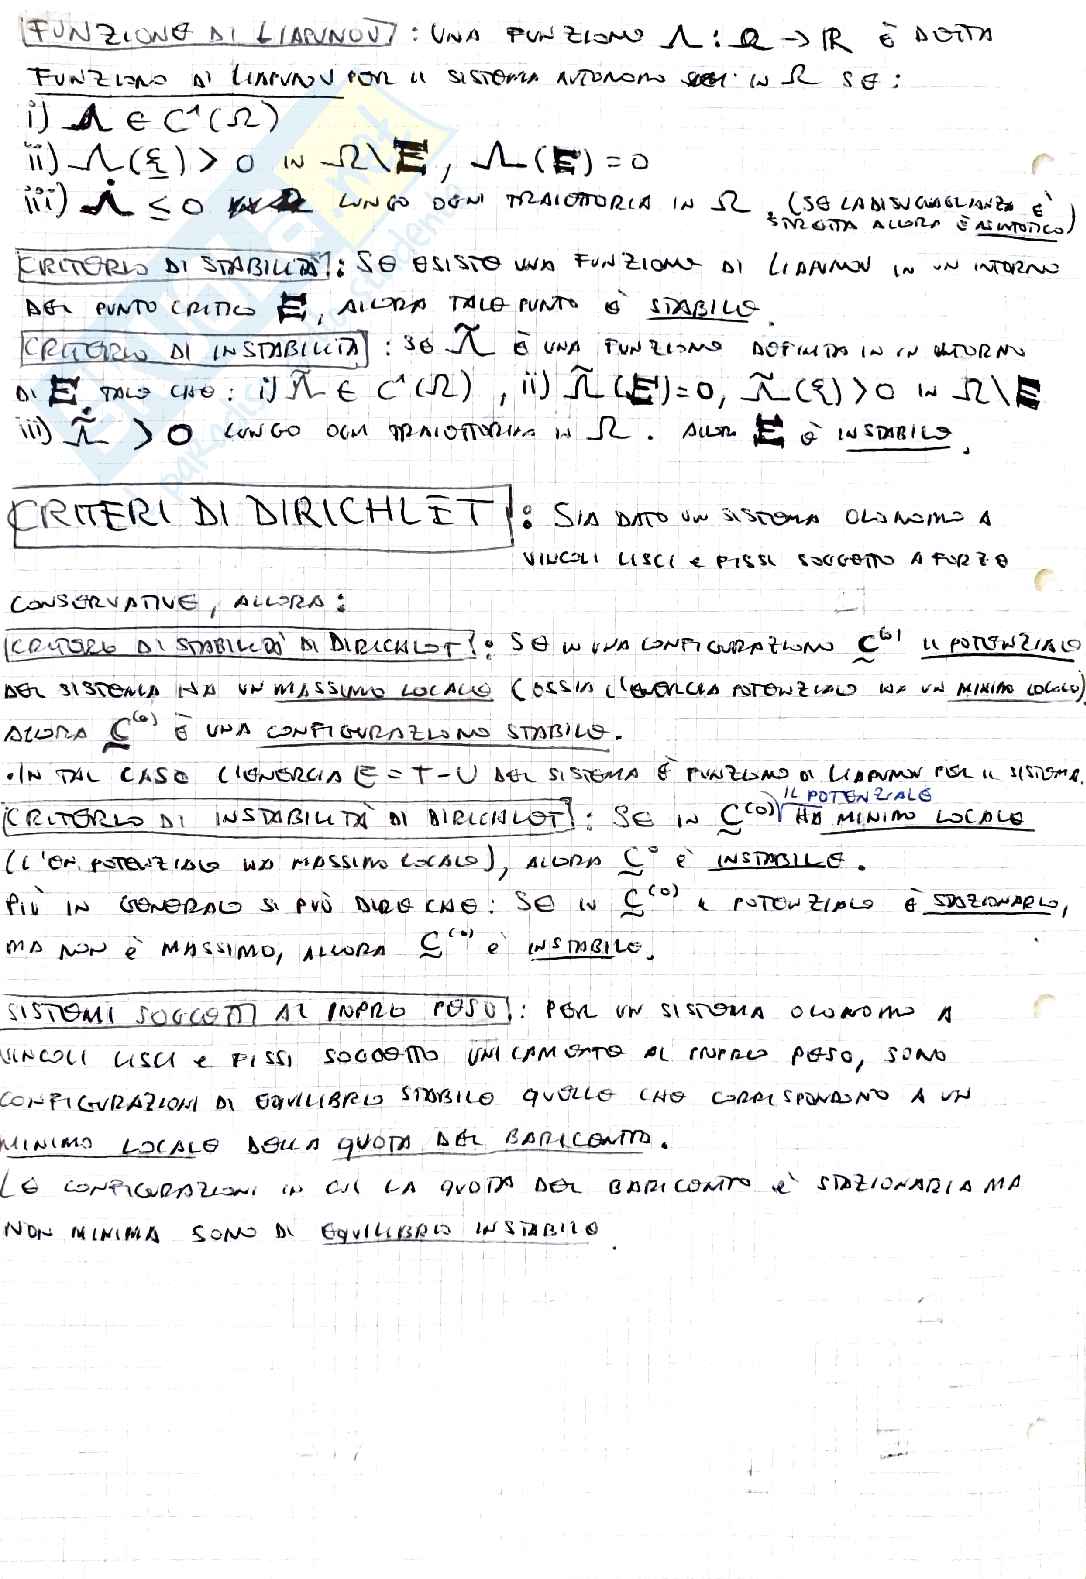 FUNZIONE DI LIAPUNOV: UNA FUNZIONE Λ: Ω → ℝ È DETTA
FUNZIONE DI LIAPUNOV PER IL SISTEMA AUTONOMO IN Ω SE:
i) Λ ∈ C¹(Ω)
ii) Λ(ξ) > 0 IN Ω\E, Λ(E) = 0
iii) Λ̇ ≤ 0 LUNGO OGNI TRAIETTORIA IN Ω. (SE LA DISUGUAGLIANZA È
STRETTA ALLORA È ASINTOTICO)
CRITERIO DI STABILITÀ: SE ESISTE UNA FUNZIONE DI LIAPUNOV IN UN INTORNO
DEL PUNTO CRITICO E, ALLORA TALE PUNTO È STABILE.
CRITERIO DI INSTABILITÀ: SE Λ̃ È UNA FUNZIONE DEFINITA IN IN INTORNO
DI E TALE CHE: i) Λ̃ ∈ C¹(Ω), ii) Λ̃(E)=0, Λ̃(ξ)>0 IN Ω\E
iii) Λ̃̇ > 0 LUNGO OGNI TRAIETTORIA IN Ω. ALLORA E È INSTABILE.
CRITERI DI DIRICHLET: SIA DATO UN SISTEMA OLONOMO A
VINCOLI LISCI E FISSI SOGGETTO A FORZE
CONSERVATIVE, ALLORA:
CRITERIO DI STABILITÀ DI DIRICHLET: SE IN UNA CONFIGURAZIONE C⁽⁰⁾ IL POTENZIALE
DEL SISTEMA HA UN MASSIMO LOCALE (OSSIA L'ENERGIA POTENZIALE HA UN MINIMO LOCALE),
ALLORA C⁽⁰⁾ È UNA CONFIGURAZIONE STABILE.
• IN TAL CASO L'ENERGIA E = T - U DEL SISTEMA È FUNZIONE DI LIAPUNOV PER IL SISTEMA.
IL POTENZIALE
CRITERIO DI INSTABILITÀ DI DIRICHLET: SE IN C⁽⁰⁾ HA MINIMO LOCALE
(L'EN. POTENZIALE HA MASSIMO LOCALE), ALLORA C⁰ È INSTABILE.
PIÙ IN GENERALE SI PUÒ DIRE CHE: SE IN C⁽⁰⁾ IL POTENZIALE È STAZIONARIO,
MA NON È MASSIMO, ALLORA C⁽⁰⁾ È INSTABILE.
SISTEMI SOGGETTI AL PROPRIO PESO: PER UN SISTEMA OLONOMO A
VINCOLI LISCI E FISSI SOGGETTO UNICAMENTE AL PROPRIO PESO, SONO
CONFIGURAZIONI DI EQUILIBRIO STABILE QUELLE CHE CORRISPONDONO A UN
MINIMO LOCALE DELLA QUOTA DEL BARICENTRO.
LE CONFIGURAZIONI IN CUI LA QUOTA DEL BARICENTRO È STAZIONARIA MA
NON MINIMA SONO DI EQUILIBRIO INSTABILE.